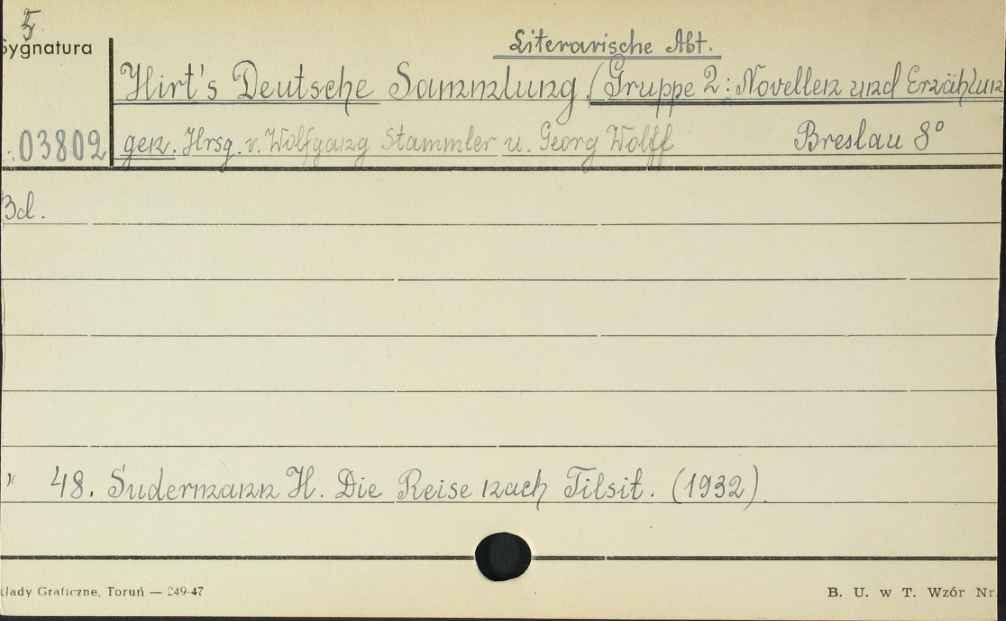 Sygnatura
Literarische Abt.
Hirt's Deutsche Sammlung (Gruppe 2: Novellen und Erzählun
03802 gen. Hrsg. v. Wolfgang Stammler u. Georg Wolff Breslau 8°
Bd.
" 48. Sudermann H. Die Reise nach Tilsit. (1932)
łady Graficzne, Toruń — 249-47
B. U. w T. Wzór Nr.